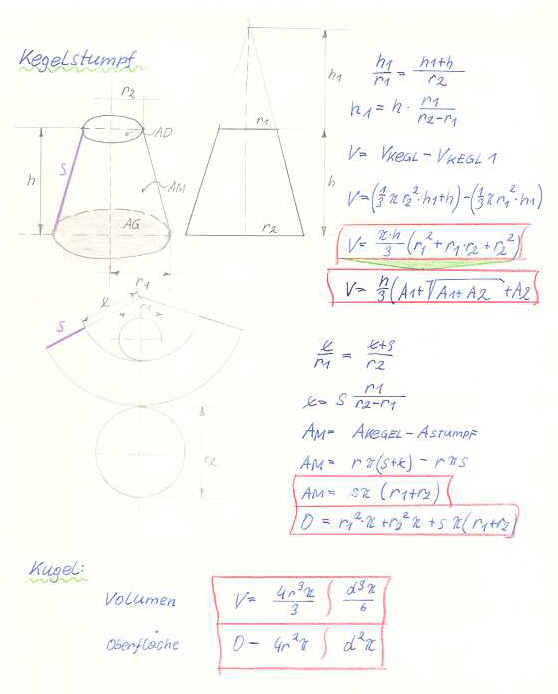 Kegelstumpf
r2
AD
S
h
AM
AG
r1
h1
r1
h
r2
h1/r1 = h1+h/r2
h1 = h · r1/r2-r1
V = VKEGL - VKEGL 1
V = (1/3 π r2² · h1+h) - (1/3 π r1² · h1)
V = π·h/3 (r1² + r1·r2 + r2²)
V = h/3 (A1+√A1+A2 + A2
S
x
r1
r2
x/r1 = x+s/r2
x = S r1/r2-r1
AM = AKEGEL - ASTUMPF
AM = rπ(s+x) - rπs
AM = sπ (r1+r2)
O = r1²·π + r2²π + sπ(r1+r2)
Kugel:
Volumen V = 4r³π/3 ∫ d³π/6
Oberfläche O = 4r²π ∫ d²π